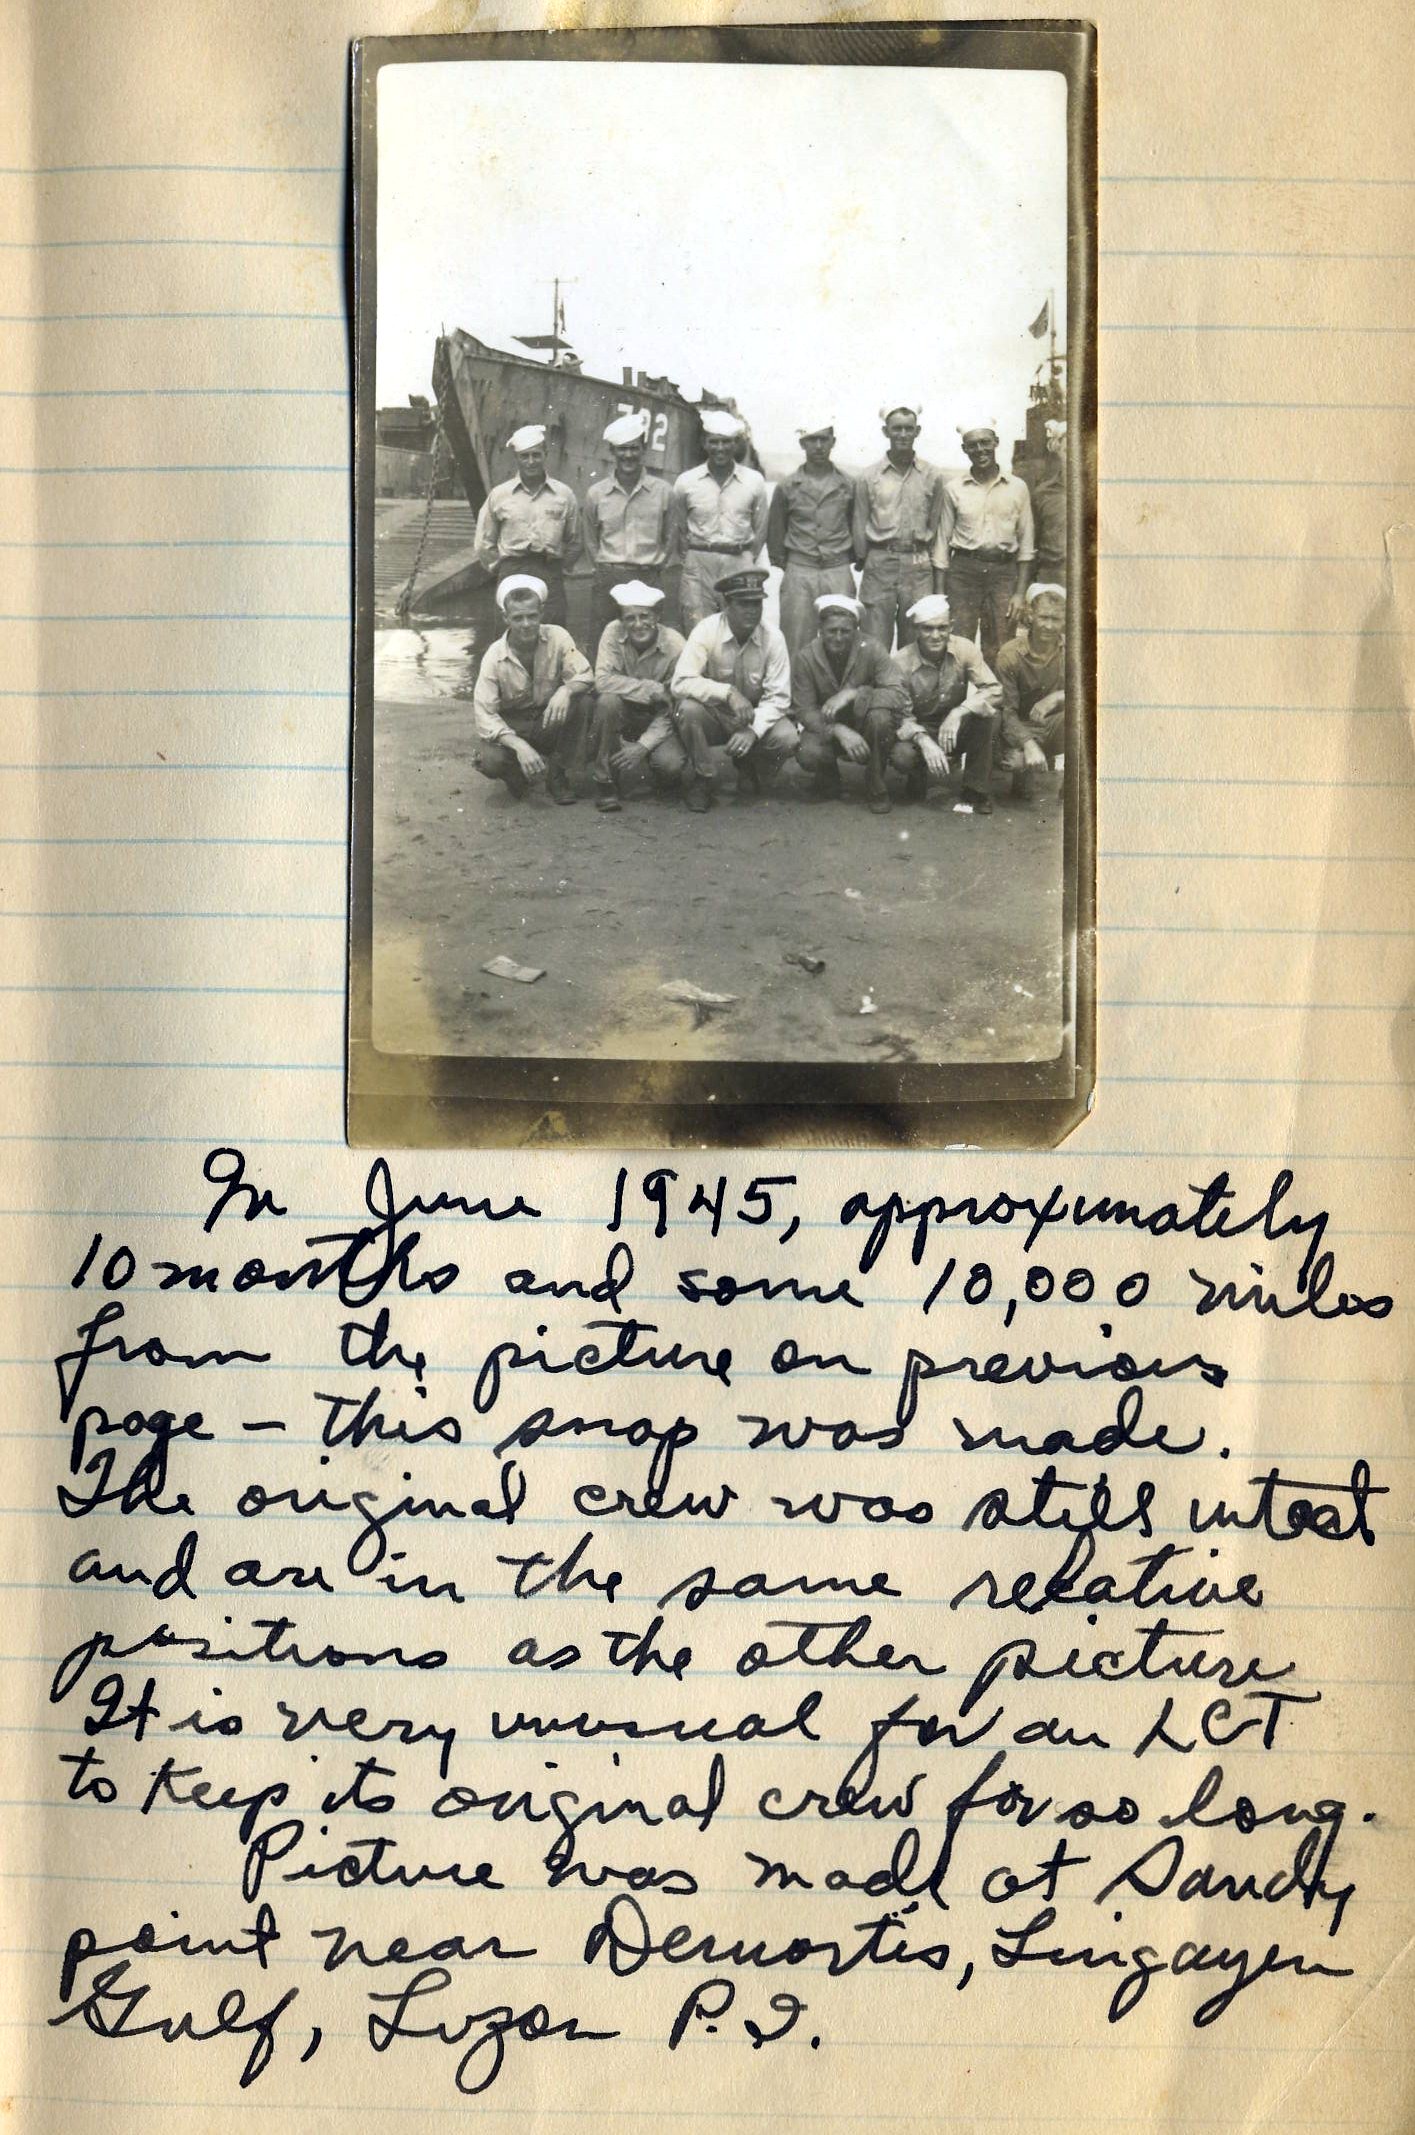 792
In June 1945, approximately
10 months and some 10,000 miles
from the picture on previous
page — this snap was made.
The original crew was still intact
and are in the same relative
positions as the other picture
It is very unusual for an LCT
to keep its original crew for so long.
Picture was made at Sandy
point near Demortis, Lingayen
Gulf, Luzon P.I.